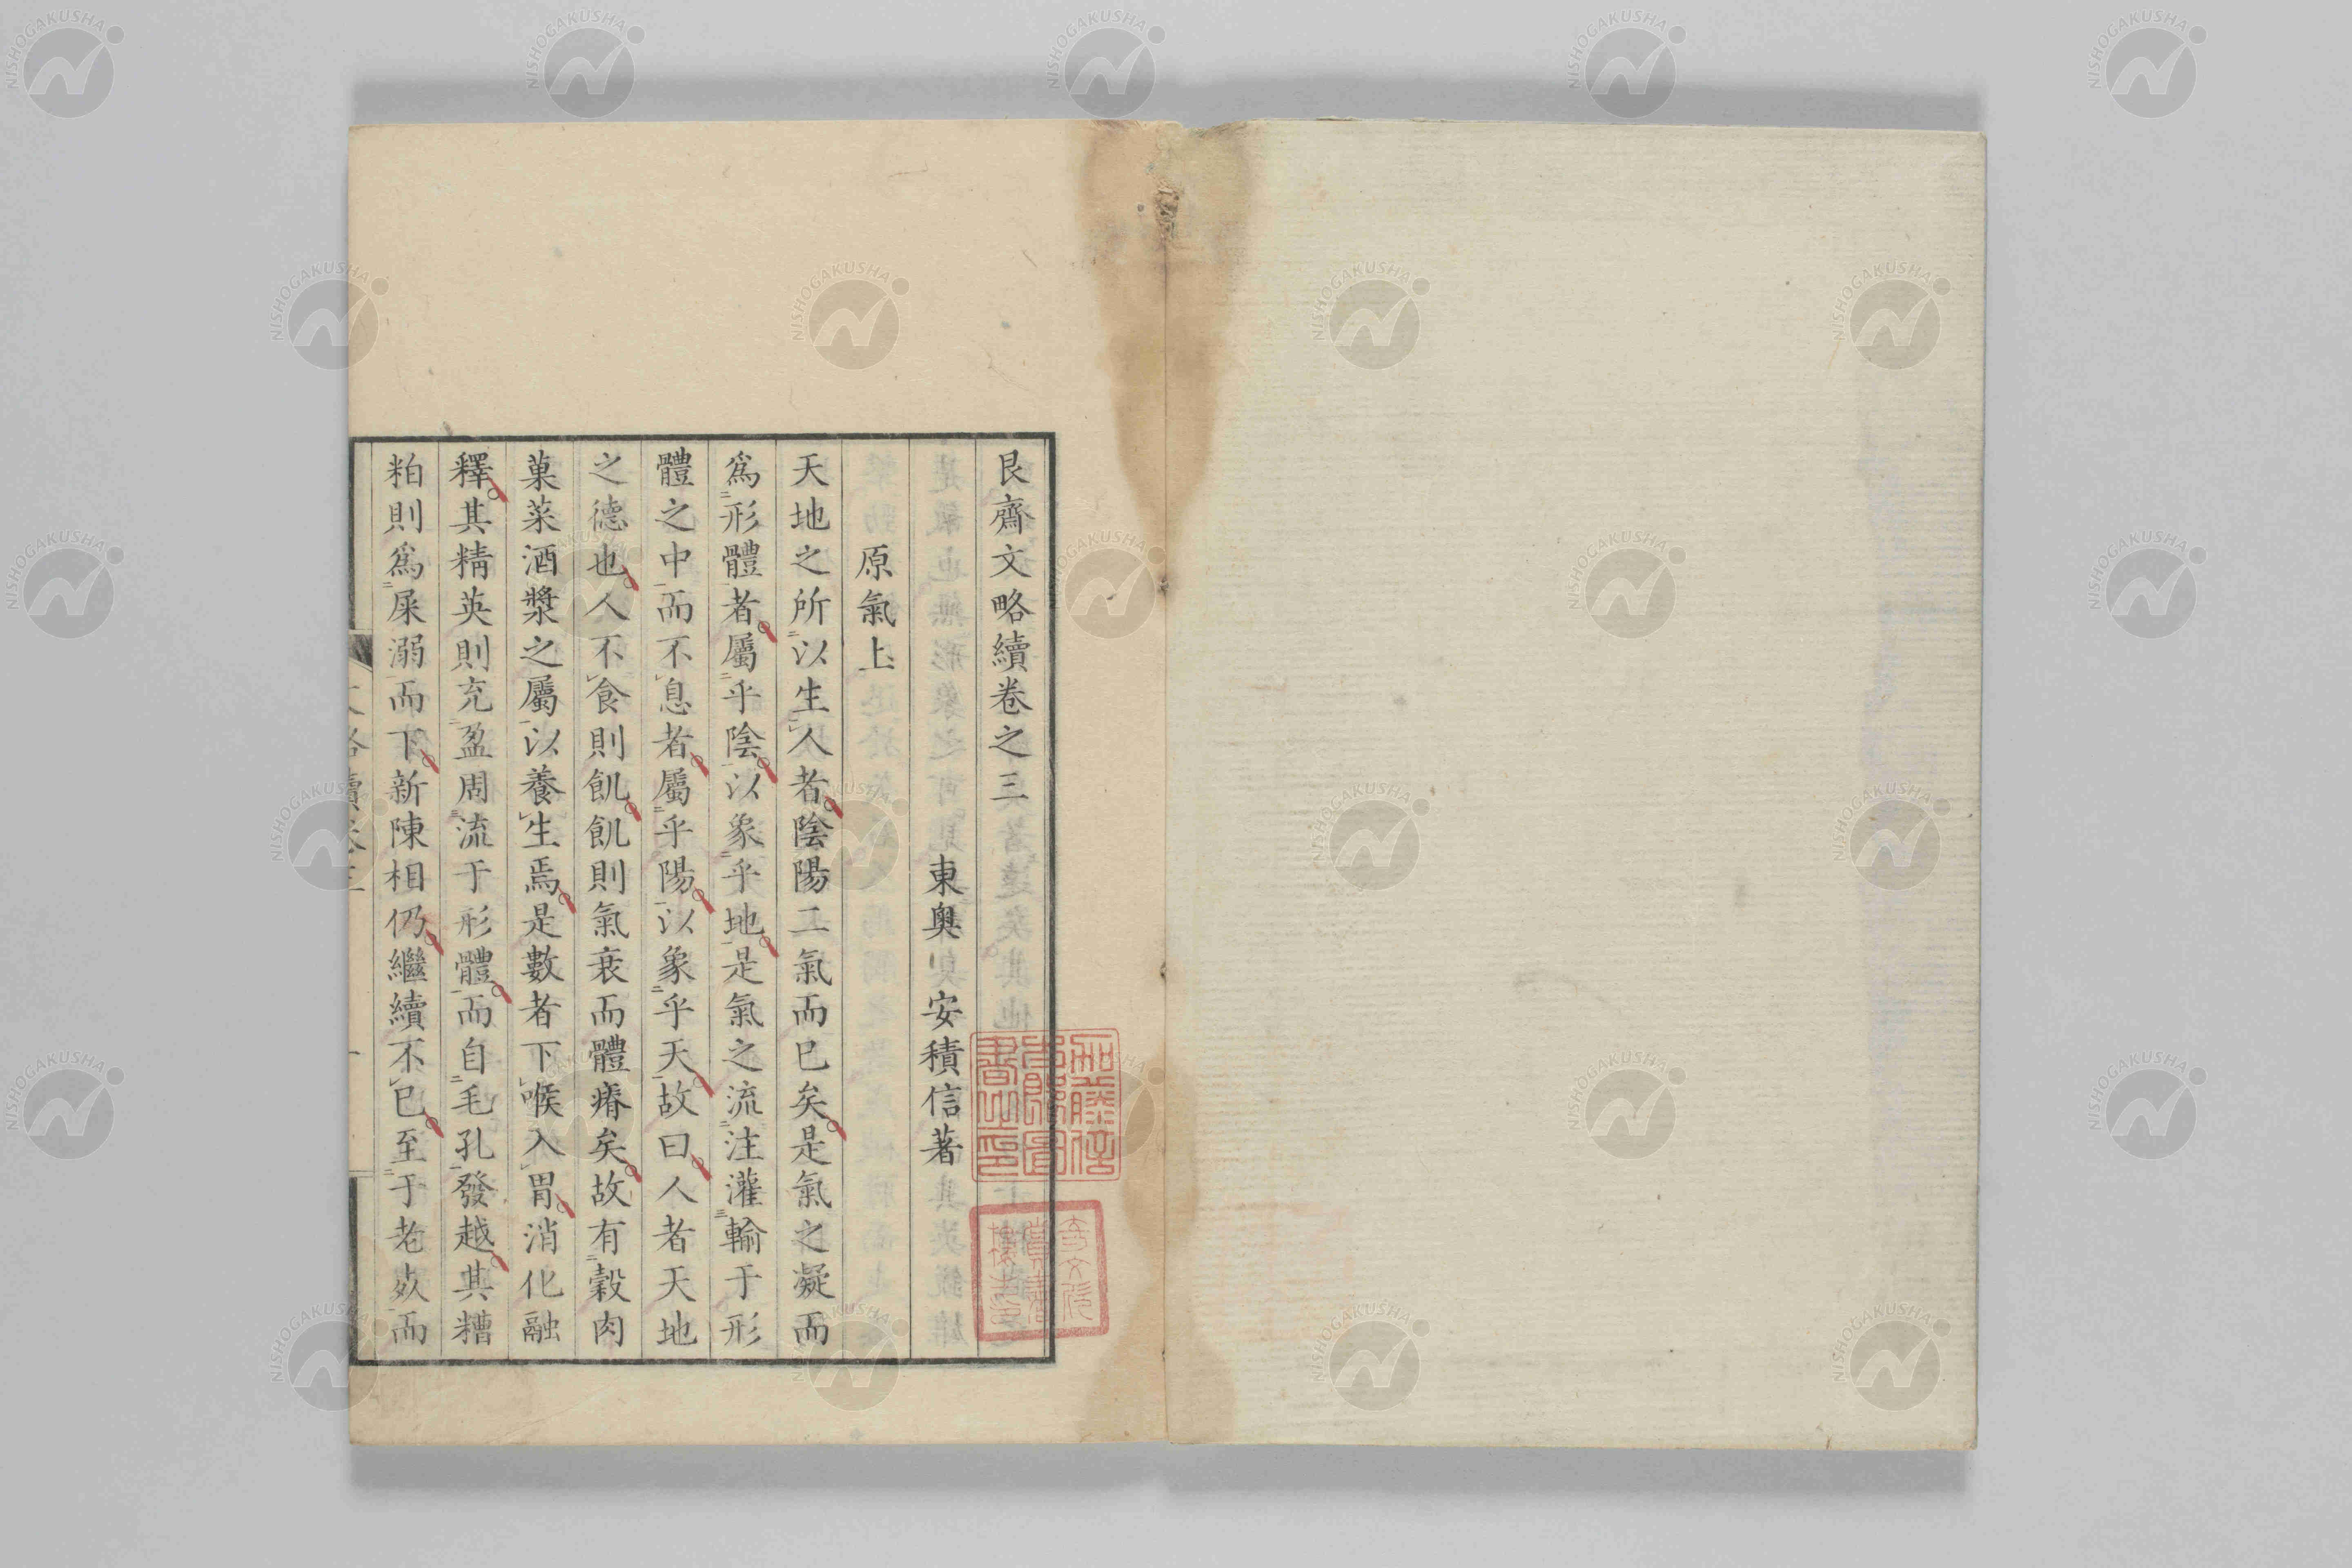 艮齋文略續卷之三
東奧 安積信著
原氣上
天地之所以生人者陰陽二氣而已矣是氣之凝而
爲形體者屬乎陰以象乎地是氣之流注灌輸于形
體之中而不息者屬乎陽以象乎天故曰人者天地
之德也人不食則飢飢則氣衰而體瘠矣故有穀肉
菓菜酒漿之屬以養生焉是數者下喉入胃消化融
釋其精英則充盈周流于形體而自毛孔發越其糟
粕則爲屎溺而下新陳相仍繼續不已至于老㱙而
NISHOGAKUSHA